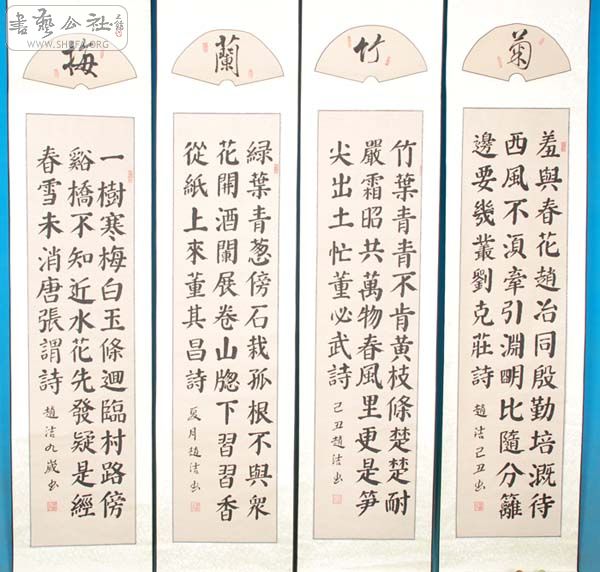 書藝公社
WWW.SHUFA.ORG
梅
一樹寒梅白玉條迴臨村路傍
谿橋不知近水花先發疑是經
春雪未消唐張謂詩 趙洁九歲書
蘭
綠葉青蔥傍石栽孤根不與眾
花開酒闌展卷山牕下習習香
從紙上來董其昌詩 夏月趙洁書
竹
竹葉青青不肯黃枝條楚楚耐
嚴霜昭共萬物春風里更是笋
尖出土忙董必武詩 己丑趙洁書
菊
羞與春花趙冶同殷勤培溉待
西風不湏牽引淵明比隨分籬
邊要幾叢劉克莊詩 趙洁己丑書